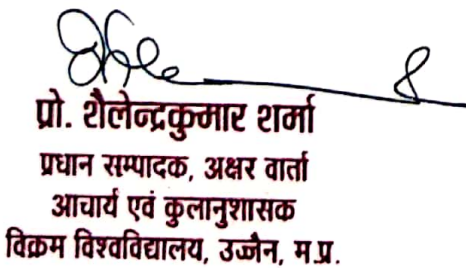 प्रो. शैलेन्द्रकुमार शर्मा
प्रधान सम्पादक, अक्षर वार्ता
आचार्य एवं कुलानुशासक
विक्रम विश्वविद्यालय, उज्जैन, म.प्र.